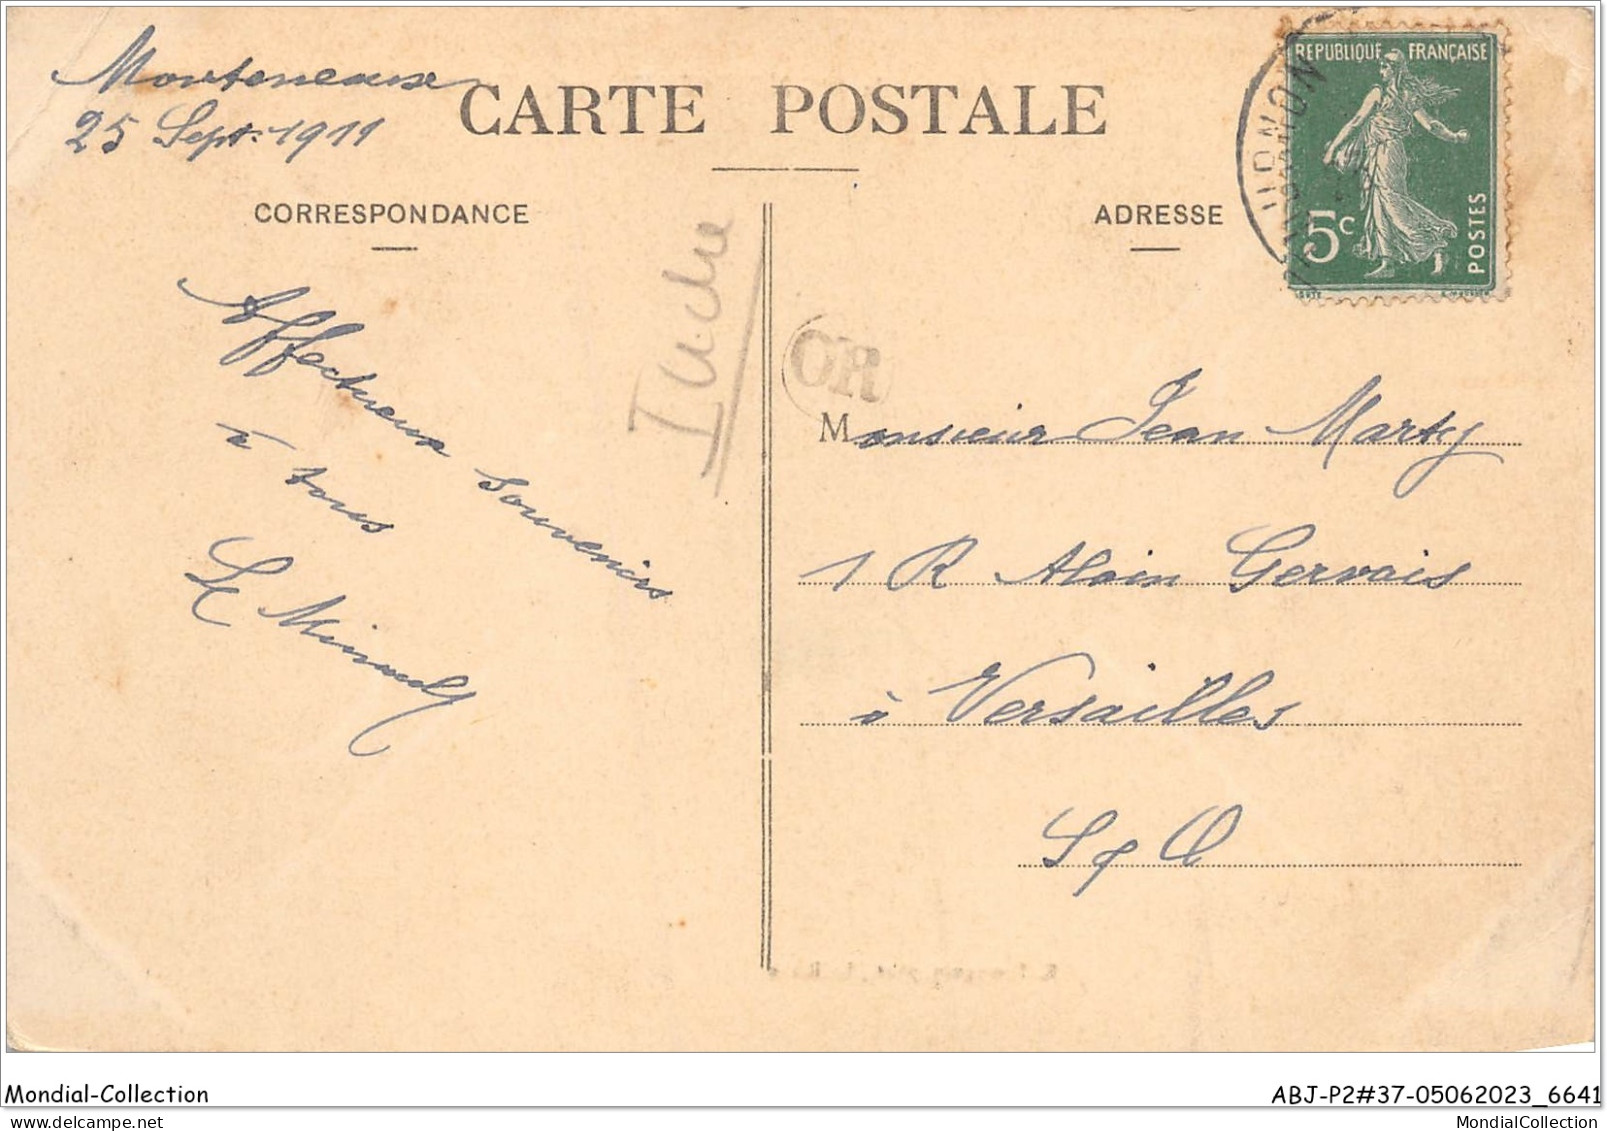 25 Sept. 1911
CARTE POSTALE
CORRESPONDANCE
ADRESSE
REPUBLIQUE FRANÇAISE
5c
POSTES
Indre
OR
Affectueux souvenirs
à tous
Monsieur Jean Marty
1 R Alain Gervais
à Versailles
S & O
Mondial-Collection
ABJ-P2#37-05062023_6641
MondialCollection
MondialCollection